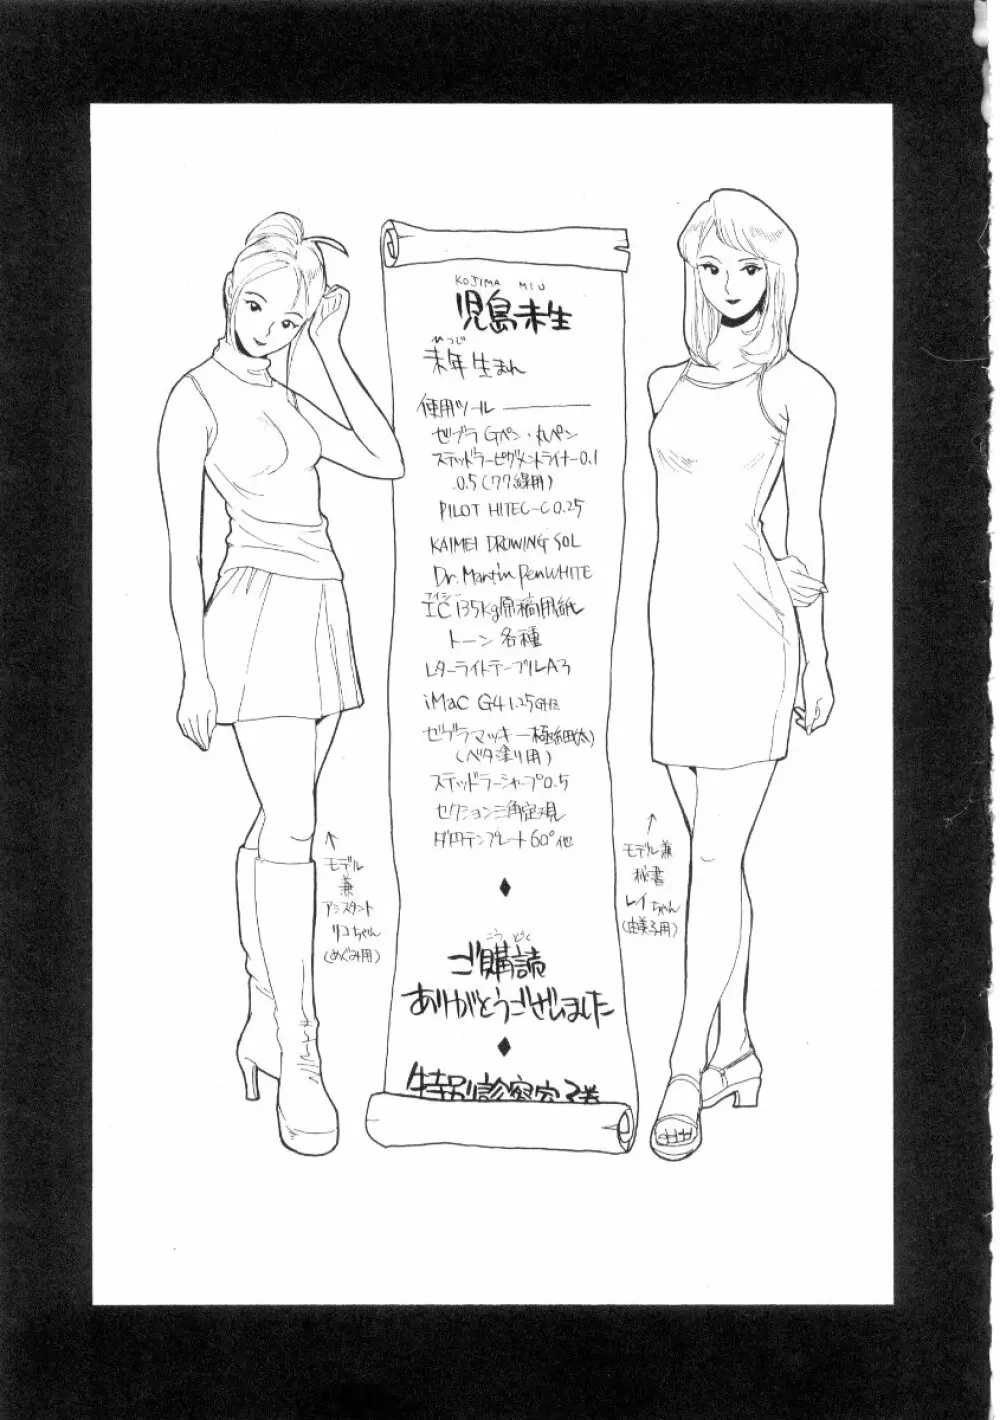 KOJIMA MIU
児島未生
ひつじ
未年生まれ
使用ツール
ゼブラ Gペン・丸ペン
ステッドラーピグメントライナー0.1
0.5(ワク線用)
PILOT HITEC-C 0.25
KAIMEI DROWING SOL
Dr. Martin PenWHITE
アイシー
IC 135kg原稿用紙
トーン 各種
Lターライトテーブル A3
iMac G4 1.25GHz
ゼブラマッキー極細(太)
(ベタ塗り用)
ステッドラーシャープ0.5
セクション三角定規
ダ円テンプレート60°他
こう どく
ご購読
ありがとうございました
特別診察室
モデル
兼
アシスタント
リコちゃん
(めぐみ用)
モデル兼
秘書
レイちゃん
(由美子用)